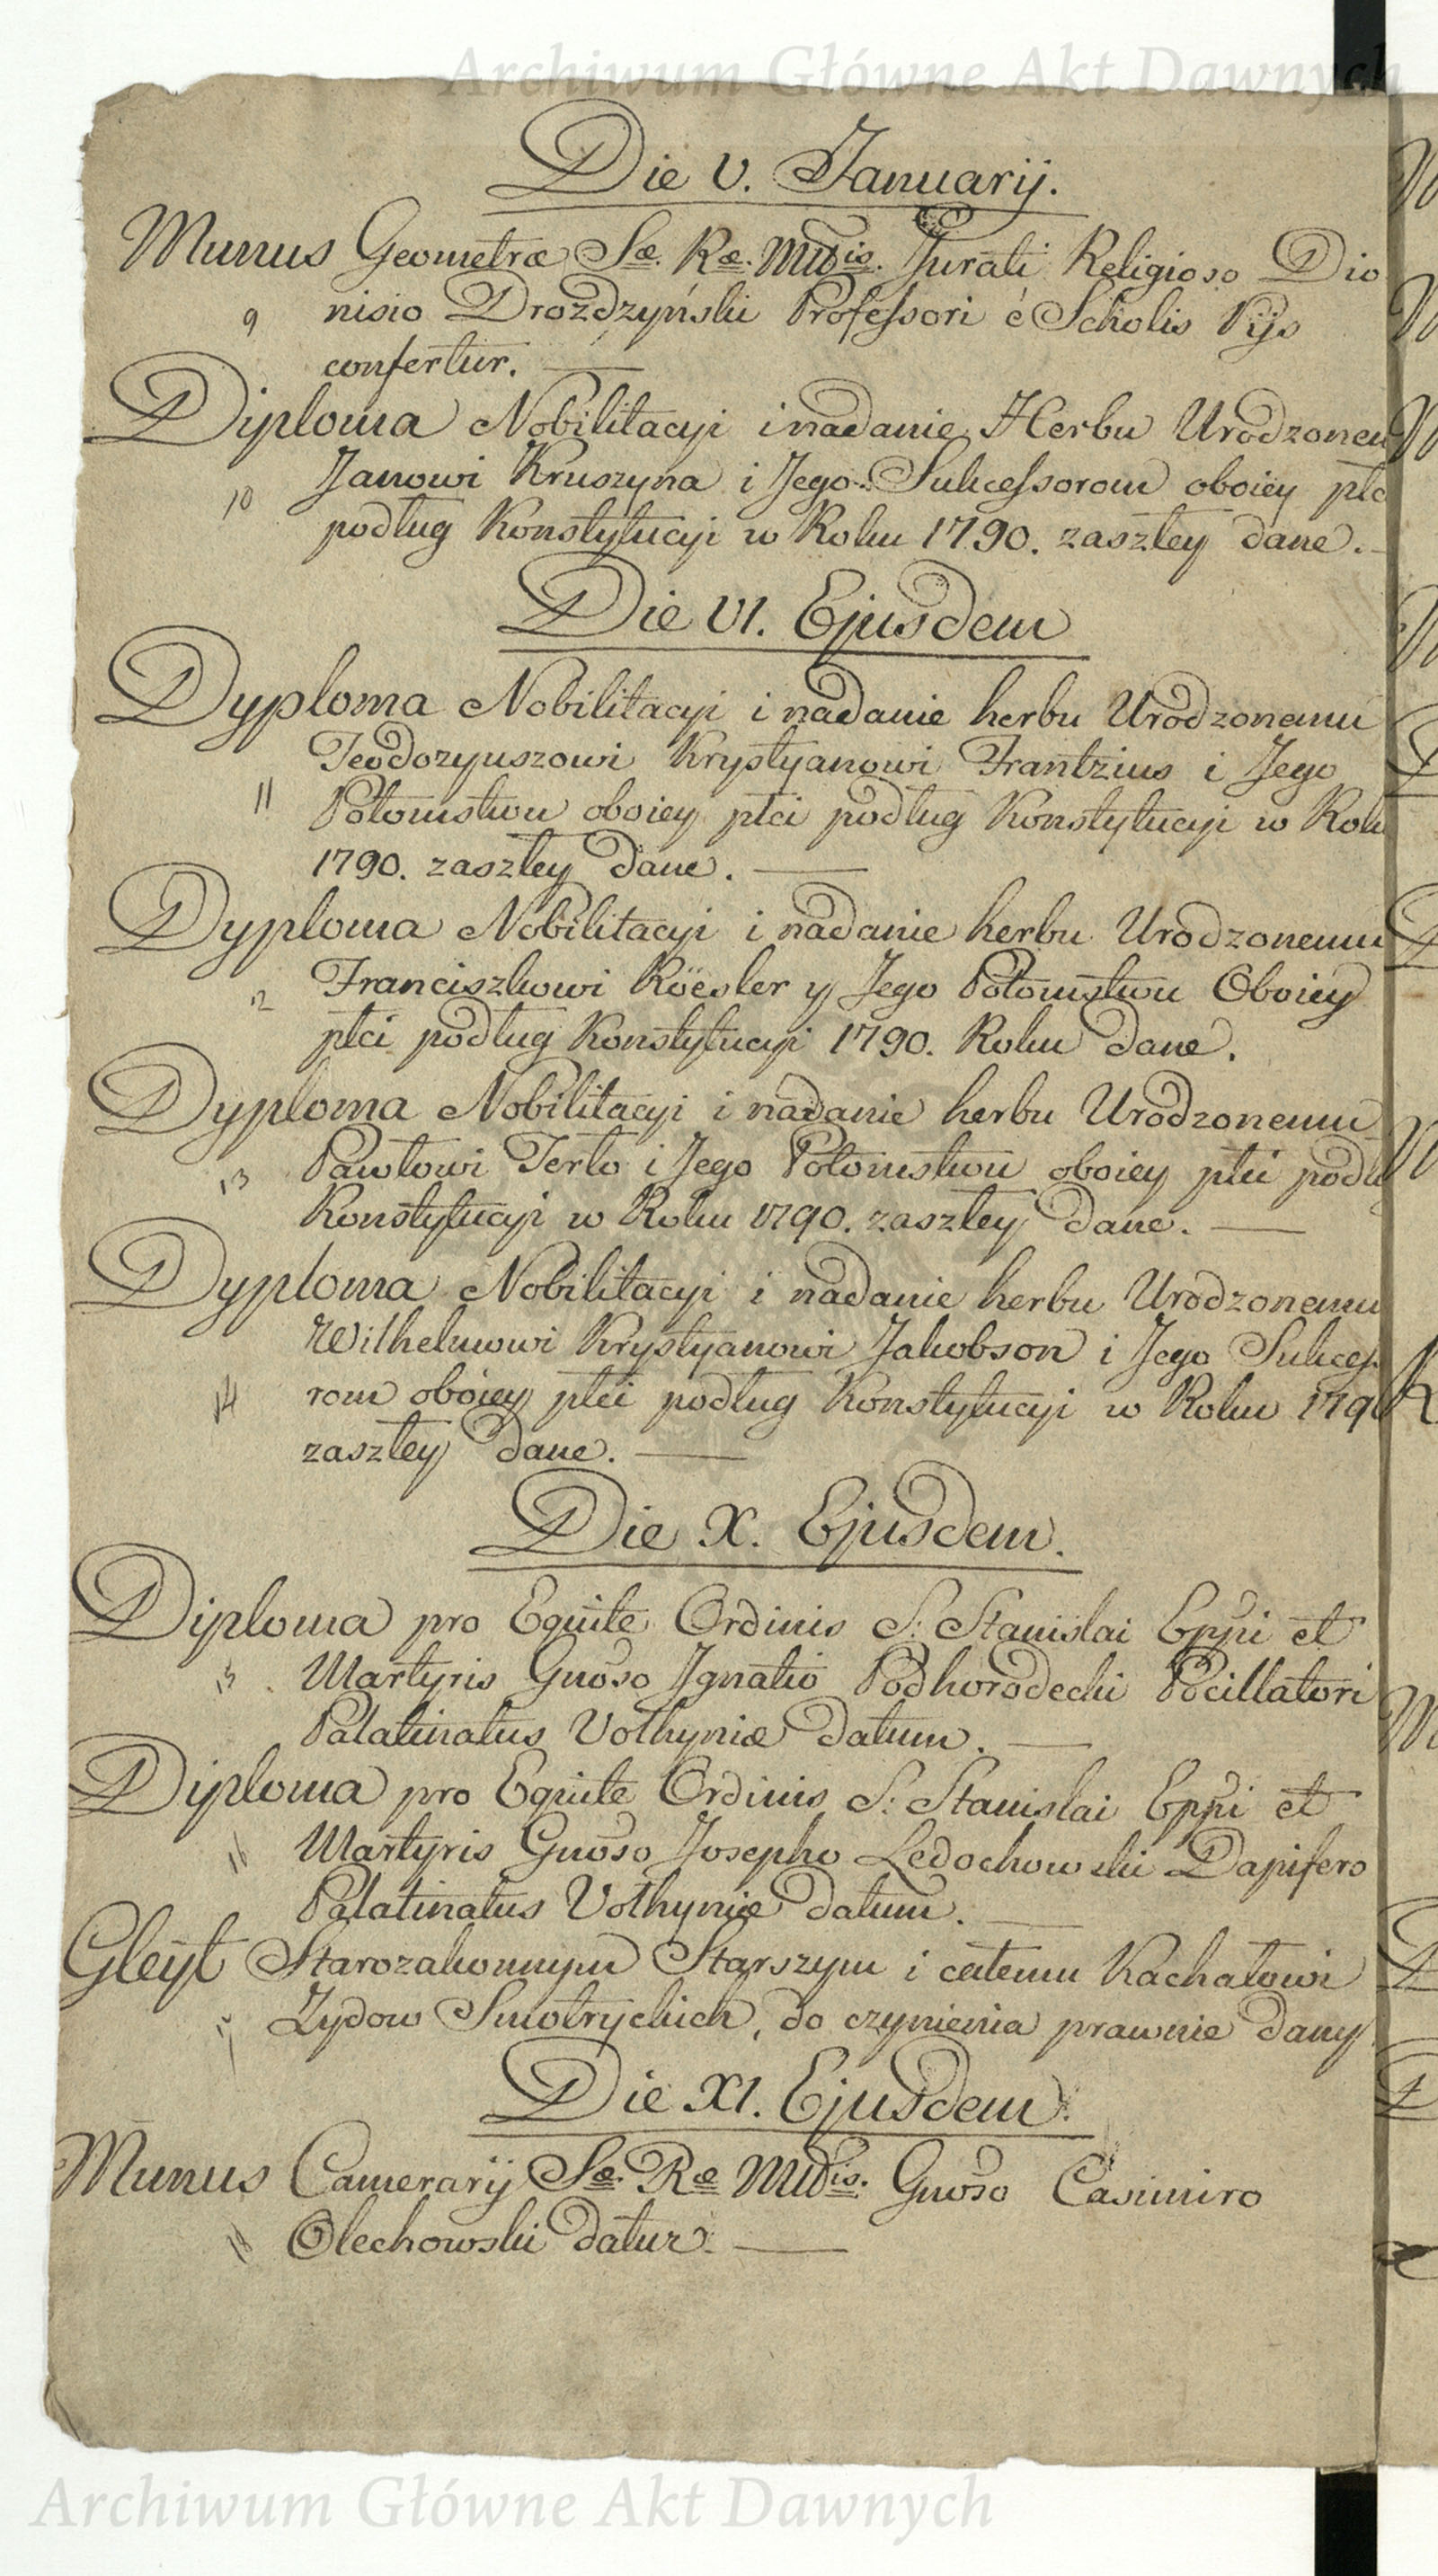 Archiwum Główne Akt Dawnych
Die V. Januarij.
Munus Geometræ Sæ. Ræ. Mttis. Jurati Religioso Dio
9 nisio Drozdzyński Professori é Scholis Pijs
confertur.
Diploma Nobilitacyi i nadanie Herbu Urodzonem
10 Janowi Kruszyna i Jego Sukcessorom oboiey płc
podług Konstytucyi w Roku 1790. zaszłey dane.
Die VI. Ejusdem
Dyploma Nobilitacyi i nadanie herbu Urodzonemu
Teodozyuszowi Krystyanowi Frantzius i Jego
11 Potomstwu oboiey płci podług Konstytucyi w Roku
1790. zaszłey dane.
Dyploma Nobilitacyi i nadanie herbu Urodzonemu
12 Franciszkowi Röesler y Jego Potomstwu Oboiey
płci podług Konstytucyi 1790. Roku dane.
Dyploma Nobilitacyi i nadanie herbu Urodzonemu
13 Pawłowi Terło i Jego Potomstwu oboiey płci podłu
Konstytucyi w Roku 1790. zaszłey dane.
Dyploma Nobilitacyi i nadanie herbu Urodzonemu
Wilhelmowi Krystyanowi Jakobson i Jego Sukces
14 rom oboiey płci podług Konstytucyi w Roku 1790
zaszłey dane.
Die X. Ejusdem.
Diploma pro Equite Ordinis S: Stanislai Eppi et
15 Martyris Gnoso Ignatio Podhorodecki Pocillatori
Palatinatus Volhyniæ datum.
Diploma pro Equite Ordinis S: Stanislai Eppi et
16 Martyris Gnoso Josepho Ledochowski Dapifero
Palatinatus Volhyniæ datum.
Gleyt Starozakonnym Starszym i całemu Kachałowi
17 Zydow Smotryckich, do czynienia prawnie dany
Die XI. Ejusdem.
Munus Camerarij Sæ Ræ Mttis. Gnoso Casimiro
18 Olechowski datur.
Archiwum Główne Akt Dawnych